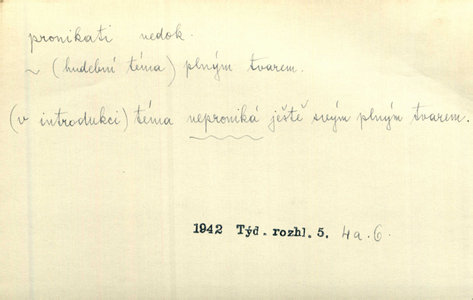 pronikati nedok.
~ (hudební téma) plným tvarem.
(v introdukci) téma neproniká ještě svým plným tvarem.
1942 Týd. rozhl. 5. 4a. 6.